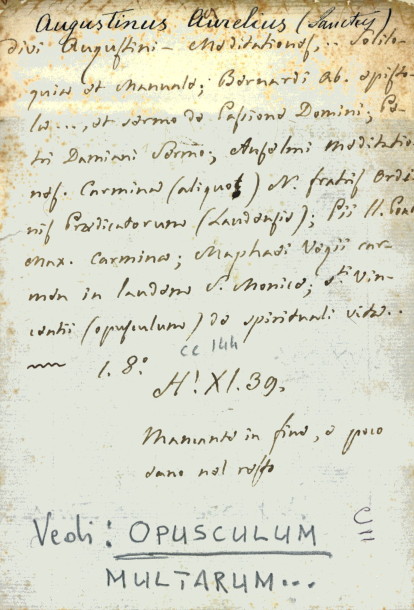 Augustinus Aurelius (Sanctus)
Divi Augustini - Meditationes,.. Solilo-
quia et Manuale; Bernardi Ab. episto-
la ..., et sermo de Passione Domini; Pe-
tri Damiani Sermo; Anselmi meditatio-
nes. Carmina (aliquot) N. fratris Ordi-
nis Prædicatorum (Laudensis); Pii II. Pont.
Max. Carmina; Maphaei Vegii car-
men in laudem S. Monicæ; Sti Vin-
centii (opusculum) de spirituali vita..
1. 8.°
cc 144
H! XI. 39.
Mancante in fine, e poco
dano nel resto
Vedi: OPUSCULUM
MULTARUM...